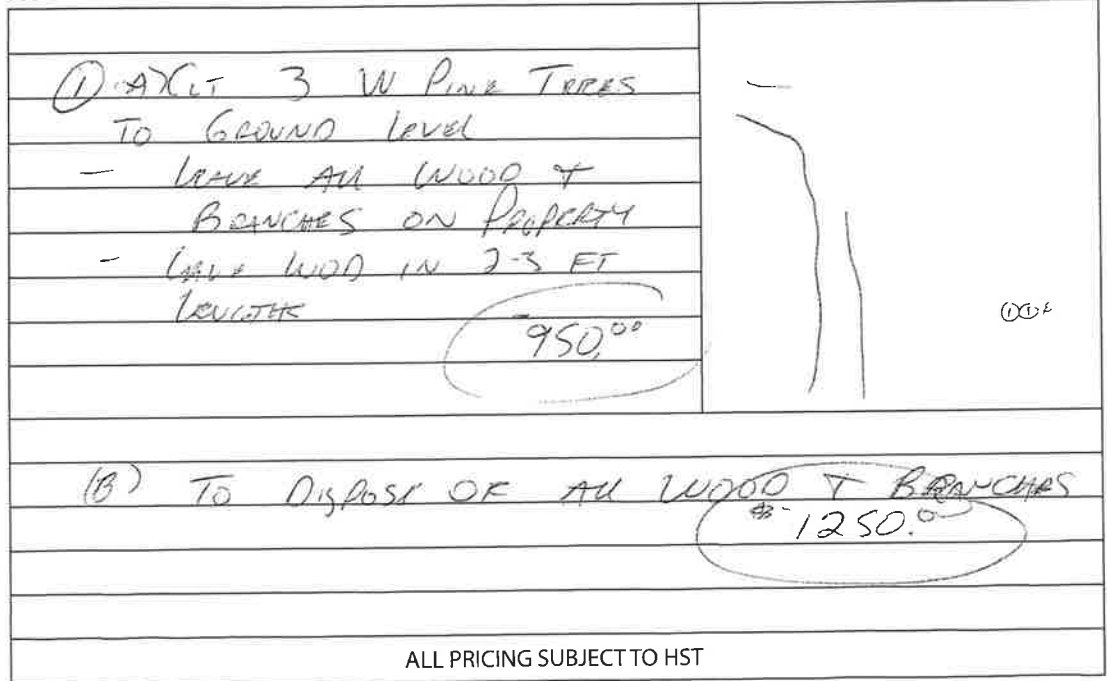 ① A) Cut 3 W Pine Trees
To Ground Level
- Leave All Wood &
Branches on Property
- Leave Wood in 2-3 FT
Lengths
950.00
①①
(B) To Dispose of All Wood & Branches
$1250.0
ALL PRICING SUBJECT TO HST